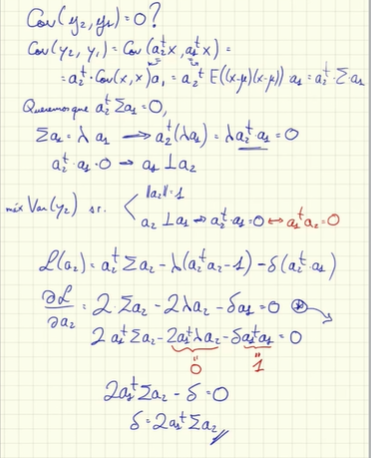 Cov(y₂, y₁) = 0?
Cov(y₂, y₁) = Cov(a₂ᵗx, a₁ᵗx) =
= a₂ᵗ · Cov(x, x) a₁ = a₂ᵗ E((x-μ)(x-μ)) a₁ = a₂ᵗ · Σ · a₁
Queremos que a₂ᵗ Σa₁ = 0,
Σa₁ = λ a₁ → a₂ᵗ(λa₁) = λa₂ᵗ · a₁ = 0
a₂ᵗ · a₁ = 0 → a₁ ⊥ a₂
máx Var(y₂) s.a. < ‖a₂‖ = 1
a₂ ⊥ a₁ → a₂ᵗ · a₁ = 0 ↔ a₁ᵗa₂ = 0
L(a₂) = a₂ᵗ Σa₂ - λ(a₂ᵗa₂ - 1) - δ(a₂ᵗ · a₁)
∂L/∂a₂ = 2 Σa₂ - 2λa₂ - δa₁ = 0 ⊛
2 a₁ᵗΣa₂ - 2a₁ᵗλa₂ - δa₁ᵗa₁ = 0
0 1
2a₁ᵗΣa₂ - δ = 0
δ = 2a₁ᵗΣa₂